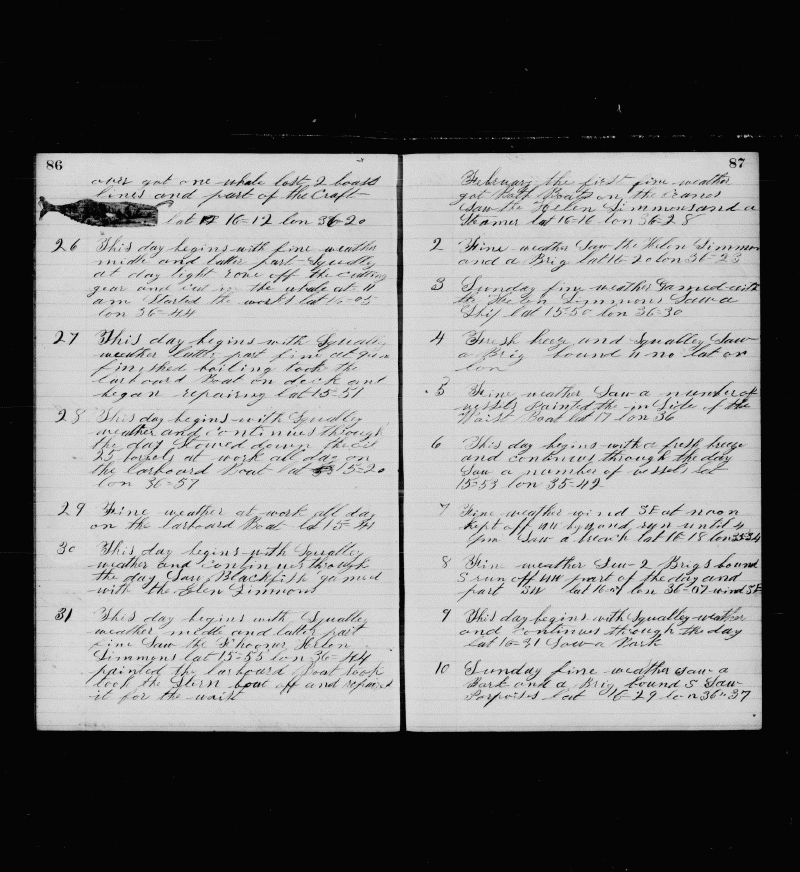 86
over got one whale lost 2 boats
lines and part of the Craft
lat 16=12 lon 36=20
26 This day begins with fine weather
middle and latter part Squally
at day light gone off the cutting
gear and cut in the whale at 11
am Started the works lat 16=05
lon 36=44
27 This day begins with Squalley
weather latter part fine at
finished boiling took the
larboard Boat on deck and
began repairing lat 15=51
28 This day begins with Squalley
weather and continius through
the day Stowed down
25 barrels at work all day on
the larboard Boat lat 15=20
lon 36=57
29 Fine weather at work all day
on the larboard Boat lat 15=41
30 This day begins with Squalley
weather and continius through
the day Saw Blackfish gamed
with the Elen Simmons
31 This day begins with Squalley
weather middle and latter part
fine Saw the Schooner Helen
Simmons lat 15=55 lon 36=44
painted the larboard Boat took
took the Stern boat off and repaired
it for the waist
87
February the first fine weather
got Both Boats on the cranes
Saw the Helen Simmons and a
Steamer lat 16=16 lon 36=28
2 Fine weather Saw the Helen Simmon
and a Brig lat 16=20 lon 36=23
3 Sunday fine weather Gamed with
the Helen Simmons Saw a
Ship lat 15=50 lon 36=30
4 Fresh breeze and Squalley Saw
a Brig bound n no lat or
lon
5 Fine weather Saw a number of
vessels painted the in Side of the
Waist Boat lat 17 lon 36
6 This day begins with a fresh breeze
and continius through the day
Saw a number of vessels lat
15=53 lon 35=42
7 Fine weather wind SE at noon
kept off and run until 4
pm Saw a breach lat 16=18 lon 35=34
8 Fine weather Saw 2 Brigs bound
S run off NW part of the day and
part SW lat 16= lon 36=07 wind SE
9 This day begins with Squalley weather
and continius through the day
lat 16=31 Saw a Bark
10 Sunday fine weather Saw a
Bark and a Brig bound S Saw
Porpoises lat 16=29 lon 36=37